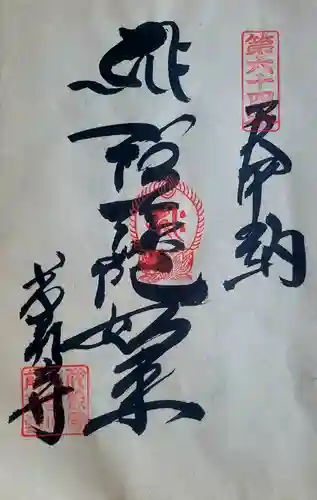 第六十四
奉納
阿弥陀如来
前神寺